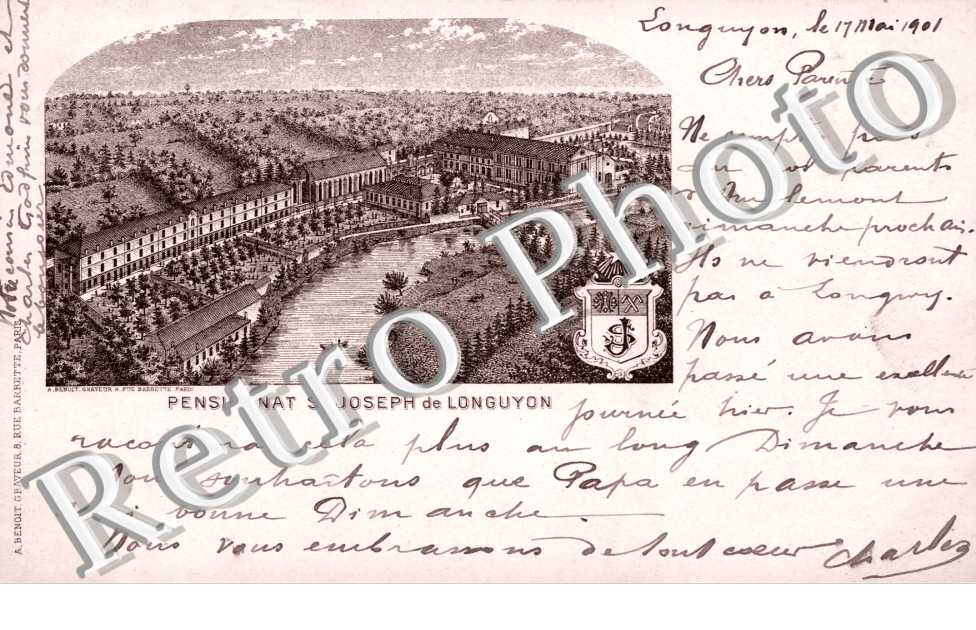 Longuyon, le 17 Mai 1901
Chers Parents
Ne comptez pas
parents
dimanche prochain.
Ils ne viendront
pas à Longwy.
Nous avons
passé une excellente
journée hier. Je vous
raconterai cela plus au long Dimanche
souhaitons que Papa en passe une
bonne Dimanche.
Nous vous embrassons de tout cœur Charles
A. BENOIT. GRAVEUR 8. RUE BARBETTE. PARIS
PENSIONNAT St JOSEPH de LONGUYON
A. BENOIT. GRAVEUR. 8. RUE BARBETTE. PARIS
Retro Photo